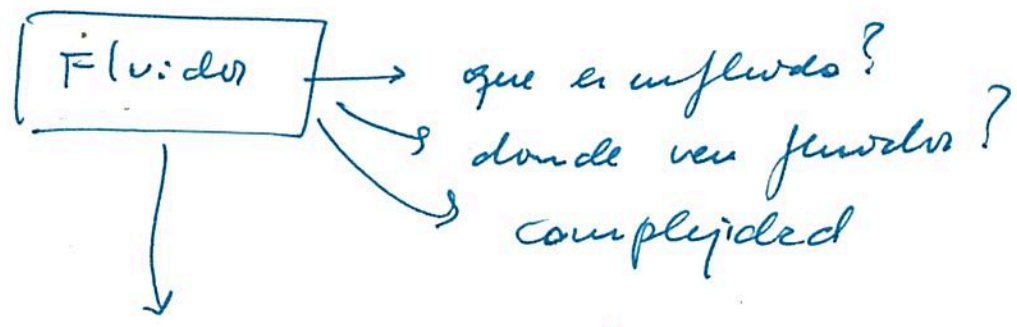 Fluidos
que es un fluido?
donde ven fluidos?
complejidad